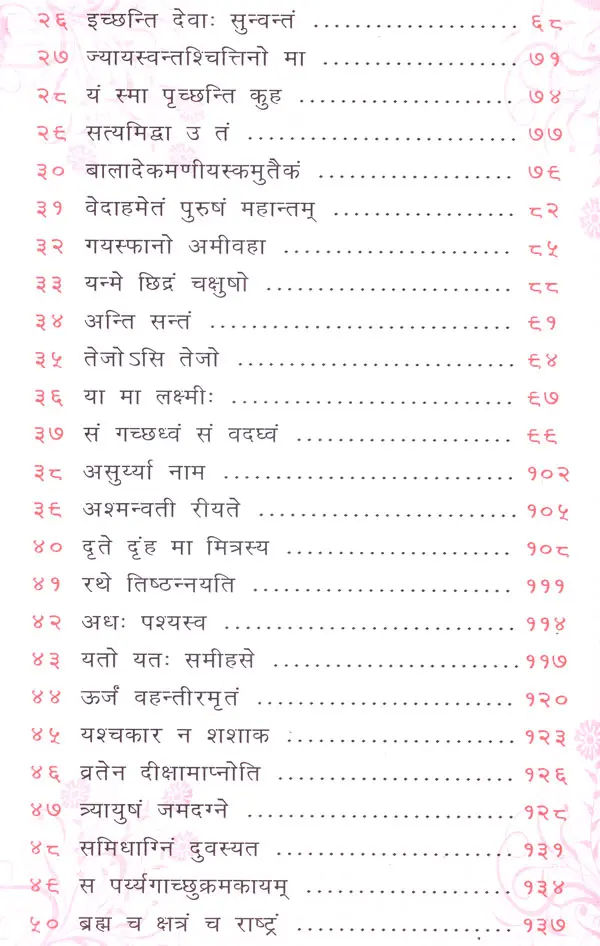 २६ इच्छन्ति देवाः सुन्वन्तं ........................ ६८
२७ ज्यायस्वन्तश्चित्तिनो मा ....................... ७१
२८ यं स्मा पृच्छन्ति कुह .......................... ७४
२९ सत्यमिद्वा उ तं ................................ ७७
३० बालादेकमणीयस्कमुतैकं ........................ ७९
३१ वेदाहमेतं पुरुषं महान्तम् ...................... ८२
३२ गयस्फानो अमीवहा ............................ ८५
३३ यन्मे छिद्रं चक्षुषो .............................. ८८
३४ अन्ति सन्तं ..................................... ९१
३५ तेजोऽसि तेजो .................................. ९४
३६ या मा लक्ष्मीः .................................. ९७
३७ सं गच्छध्वं सं वदघ्वं ........................... ९९
३८ असुर्य्या नाम ................................... १०२
३९ अश्मन्वती रीयते ............................... १०५
४० दृते दृंह मा मित्रस्य ............................ १०८
४१ रथे तिष्ठन्नयति ................................ १११
४२ अधः पश्यस्व ................................... ११४
४३ यतो यतः समीहसे .............................. ११७
४४ ऊर्जं वहन्तीरमृतं ............................... १२०
४५ यश्चकार न शशाक ............................. १२३
४६ व्रतेन दीक्षामाप्नोति ............................ १२६
४७ त्र्यायुषं जमदग्ने ................................ १२८
४८ समिधाग्निं दुवस्यत ............................. १३१
४९ स पर्य्यगाच्छुक्रमकायम् ......................... १३४
५० ब्रह्म च क्षत्रं च राष्ट्रं ........................... १३७